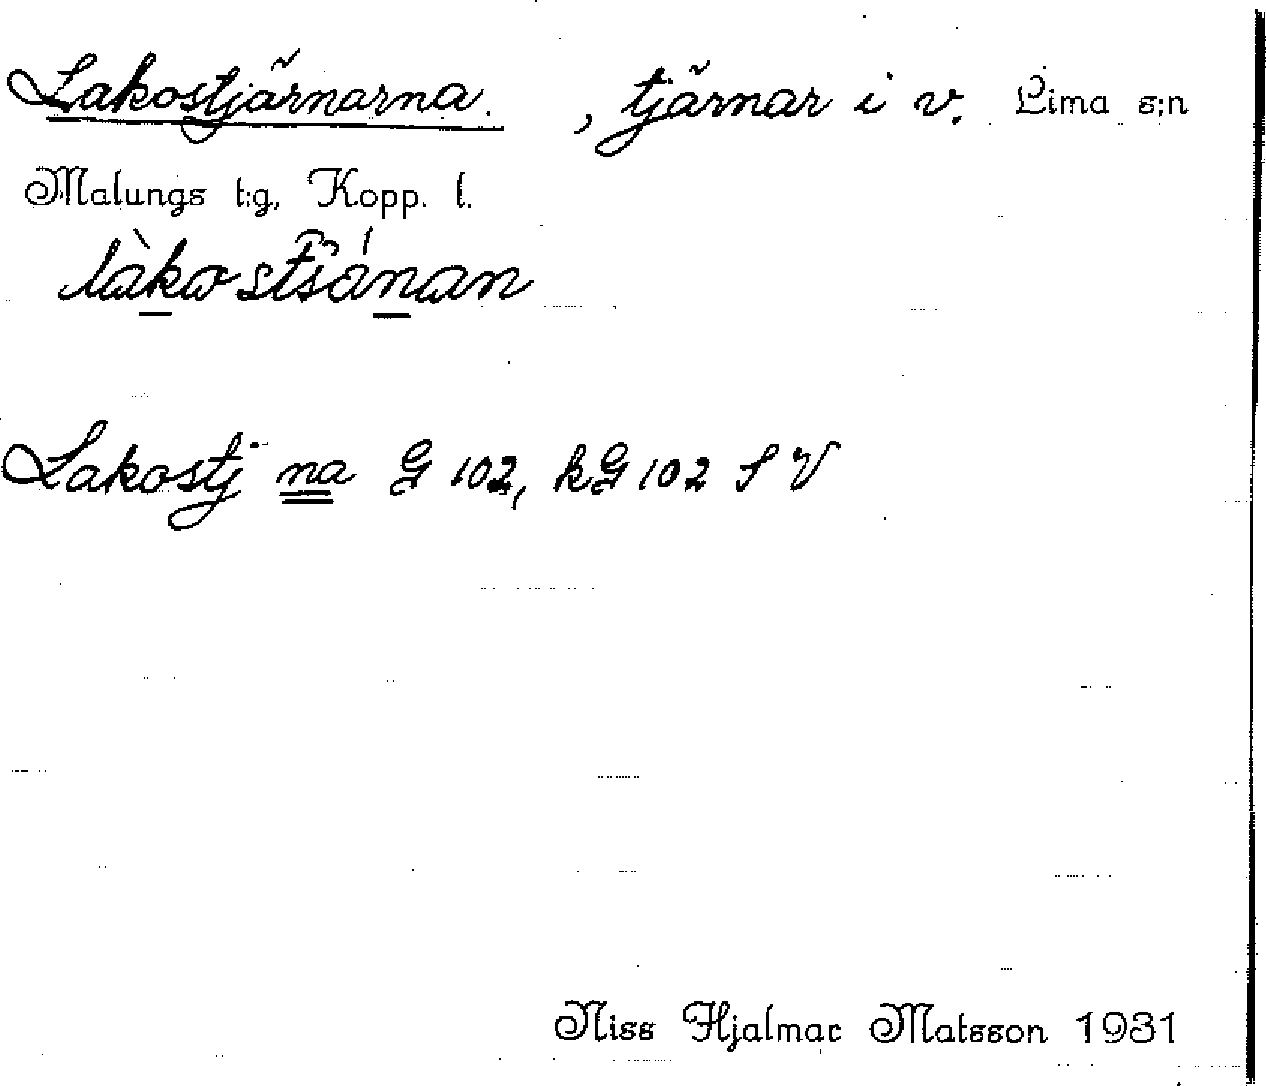 Lakostjärnarna. , tjärnar i v. Lima s:n
Malungs t:g, Kopp. l.
làkostšánan
Lakostj:na G 102, kG 102 S V
Niss Hjalmar Matsson 1931